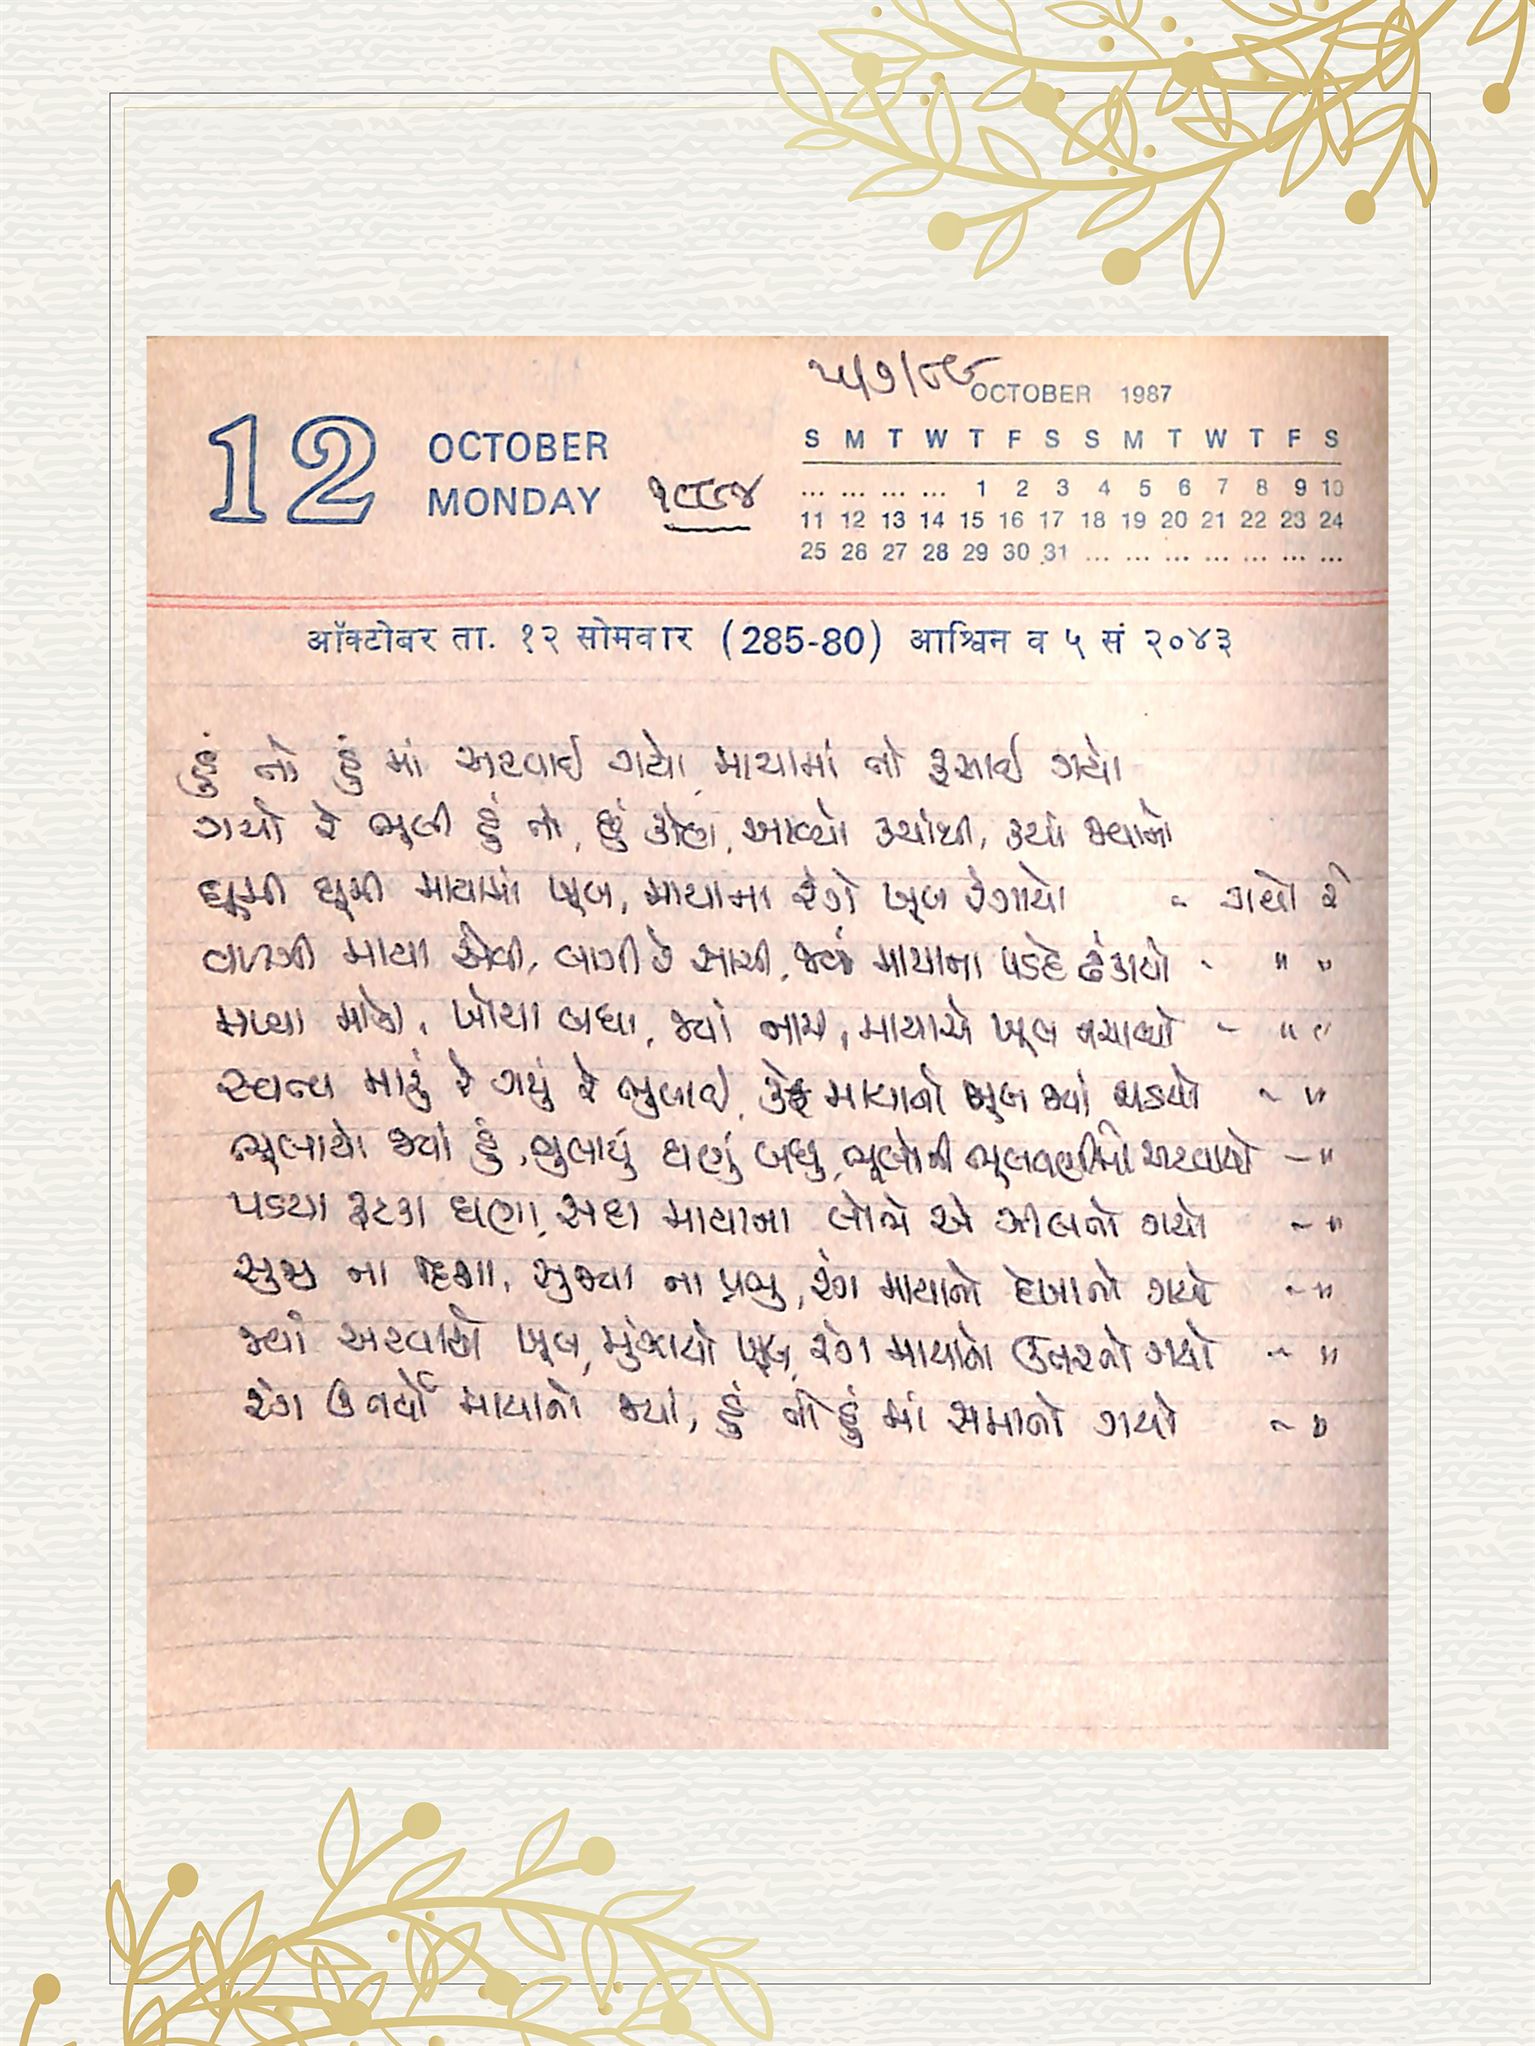 ૨૫/૭/૮૯
OCTOBER 1987
12 OCTOBER
MONDAY ૧૯૮૪
S M T W T F S S M T W T F S
... ... ... ... 1 2 3 4 5 6 7 8 9 10
11 12 13 14 15 16 17 18 19 20 21 22 23 24
25 26 27 28 29 30 31 ... ... ... ... ... ... ...
ऑक्टोबर ता. १२ सोमवार (285-80) आश्विन व ५ सं २०४३
હું તો હું માં અટવાઈ ગયો, માયામાં તો ફસાઈ ગયો
ગયો રે ભૂલી હું તો, છું કોણ, આવ્યો ક્યાંથી, ક્યાં જવાનો
ઘૂમી ઘૂમી માયામાં ખૂબ, માયાના રંગે ખૂબ રંગાયો - ગયો રે
વળગી માયા એવી, લાગી રે સાચી, જ્યાં માયાના પડદે ઢંકાયો - " "
મળ્યા માંકડા, ખોયા બધા, જ્યાં નાચ, માયાએ ખૂબ નચાવ્યો - " "
સ્વત્વ મારું રે ગયું રે ભુલાઈ, કેફ માયાનો ખૂબ જ્યાં ચડયો - "
ભૂલાયો જ્યાં હું, ભુલાયું ઘણું બધું, ભૂલોની ભૂલવણીમાં અટવાયો - "
પડયા ફટકા ઘણા, સદા માયાના લોભે એ ઝીલતો ગયો - "
સુઝી ના દિશા, સુઝ્યા ના પ્રભુ, રંગ માયાનો દેખાતો ગયો - "
જ્યાં અટવાયો ખૂબ, મુંઝાયો ખૂબ, રંગ માયાનો ઉતરતો ગયો - "
રંગ ઉતર્યો માયાનો જ્યાં, હું તો હું માં સમાતો ગયો - "